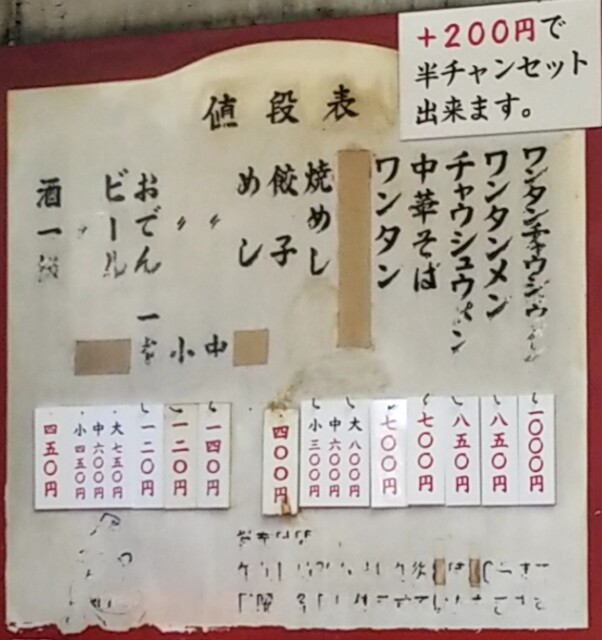 +200円で
半チャンセット
出来ます。
値段表
ワンタンチャウシュウメン
一〇〇〇円
ワンタンメン
八五〇円
チャウシュウメン
八五〇円
中華そば
七〇〇円
ワンタン
七〇〇円
焼めし
大八〇〇円
中六〇〇円
小三〇〇円
餃子
四〇〇円
めし
〃 中
一四〇円
〃 小
一二〇円
おでん 一本
一二〇円
ビール
大七五〇円
中六〇〇円
小四五〇円
酒一級
四五〇円